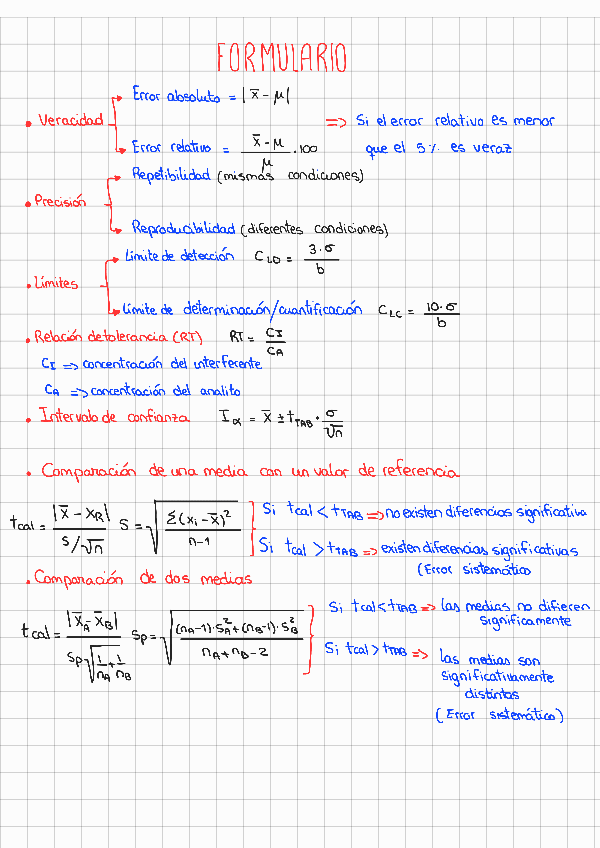 FORMULARIO
• Veracidad
Error absoluto = |x̄ - μ|
Error relativo = (x̄ - μ)/μ · 100
=> Si el error relativo es menor
que el 5% es veraz
• Precisión
Repetibilidad (mismas condiciones)
Reproducibilidad (diferentes condiciones)
• Límites
Límite de detección C_LD = 3·σ/b
Límite de determinación/cuantificación C_LC = 10·σ/b
• Relación de tolerancia (RT) RT = C_I/C_A
C_I => concentración del interferente
C_A => concentración del analito
• Intervalo de confianza I_α = x̄ ± t_TAB · σ/√n
• Comparación de una media con un valor de referencia
t_cal = |x̄ - x_R| / (S/√n) S = √(Σ(x_i - x̄)²/(n-1))
Si t_cal < t_TAB => no existen diferencias significativa
Si t_cal > t_TAB => existen diferencias significativas
(Error sistemático
• Comparación de dos medias
t_cal = |x̄_A - x̄_B| / (Sp√(1/n_A + 1/n_B)) Sp = √(((n_A-1)·S²_A + (n_B-1)·S²_B)/(n_A + n_B - 2))
Si t_cal < t_TAB => las medias no difieren
significamente
Si t_cal > t_TAB => las medias son
significativamente
distintas
(Error sistemático)